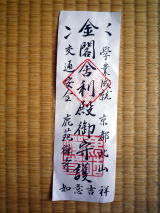 學業成就 京都北山
金閣舎利殿御守護
交通安全 鹿苑禅寺
如意吉祥